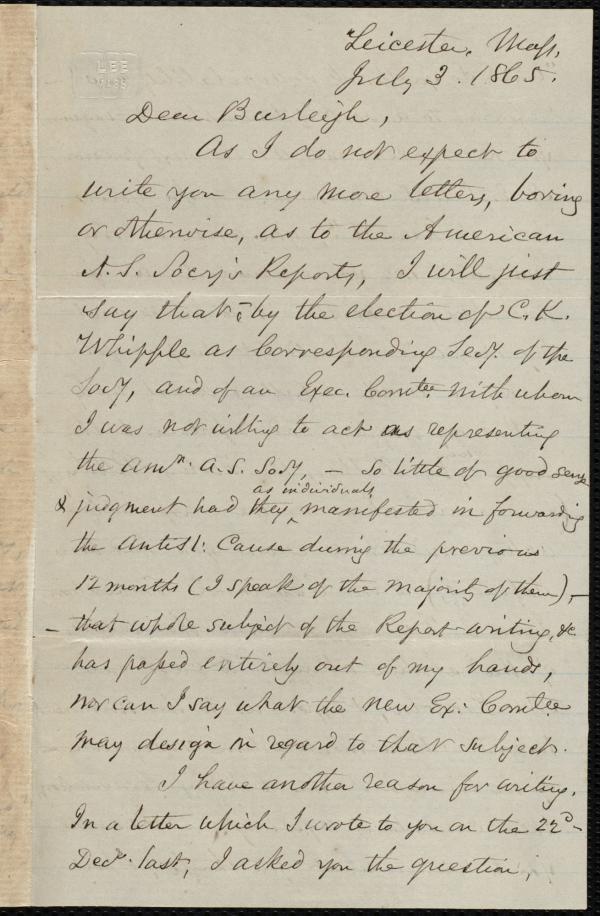 LEE
Leicester, Mass.
July 3. 1865.
Dear Burleigh,
As I do not expect to
write you any more letters, boring
or otherwise, as to the American
A. S. Socy's Reports, I will just
say that, by the election of C. K.
Whipple as Corresponding Secy. of the
Socy, and of an Exec. Comtee. with whom
I was not willing to act as representing
the Amn. A. S. Socy, – so little of good sense
& judgment had they ^ as individuals manifested in forwarding
the Antisl: Cause during the previous
12 months (I speak of the majority of them), –
– that whole subject of the Report-writing, &c
has passed entirely out of my hands,
nor can I say what the new Ex: Comtee
may design in regard to that subject.
I have another reason for writing.
In a letter which I wrote to you on the 22d
Decr. last, I asked you the question,